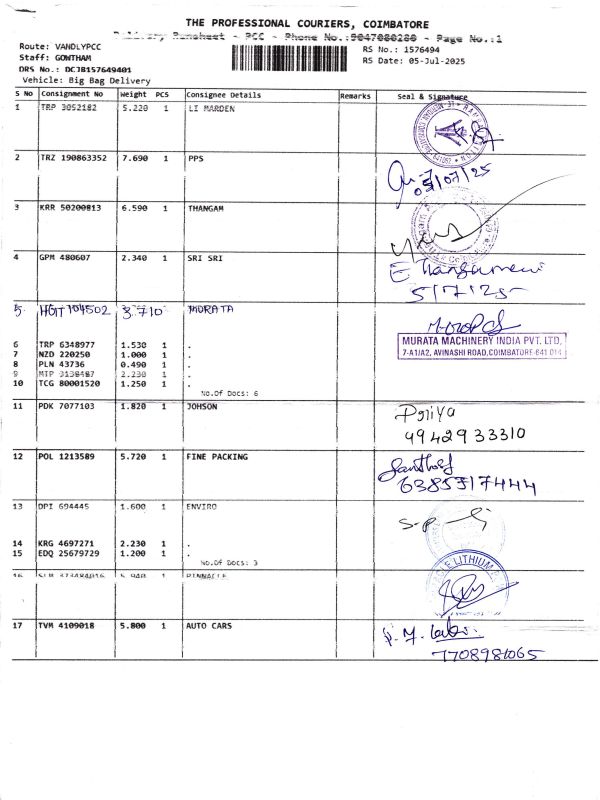 THE PROFESSIONAL COURIERS, COIMBATORE
Delivery Runsheet - PCC - Phone No.:9047080280 - Page No.:1
Route: VANDLYPCC
Staff: GOWTHAM
DRS No.: DCJB157649401
Vehicle: Big Bag Delivery
RS No.: 1576494
RS Date: 05-Jul-2025
S No Consignment No Weight PCS Consignee Details Remarks Seal & Signature
1 TRP 3052182 5.220 1 LI MARDEN
2 TRZ 190863352 7.690 1 PPS
05/07/25
3 KRR 50200813 6.590 1 THANGAM
4 GPM 480607 2.340 1 SRI SRI
5/7/25
5 HGIT 104502 3.710 MURATA
MURATA MACHINERY INDIA PVT. LTD.
7-A1/A2, AVINASHI ROAD, COIMBATORE-641 014
6 TRP 6348977 1.530 1 .
7 NZD 220250 1.000 1 .
8 PLN 43736 0.490 1 .
9 MTP 3138487 2.230 1 .
10 TCG 80001520 1.250 1 .
No.Of Docs: 6
11 PDK 7077103 1.820 1 JOHSON
Priya
9942933310
12 POL 1213589 5.720 1 FINE PACKING
6385717444
13 DPI 694445 1.600 1 ENVIRO
14 KRG 4697271 2.230 1 .
15 EDQ 25679729 1.200 1 .
No.Of Docs: 3
16 SLM 373484016 5.940 1 PINNACLE
LITHIUM
17 TVM 4109018 5.800 1 AUTO CARS
7708981065